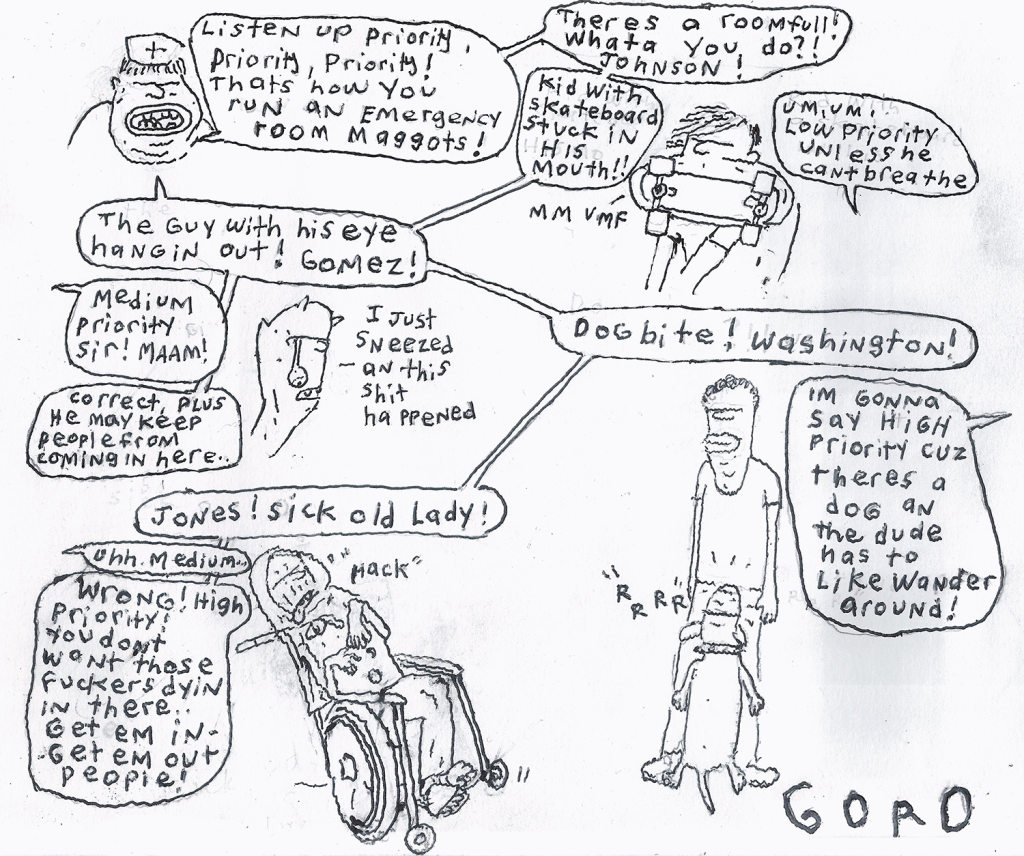 Listen up priority,
priority, priority!
Thats how you
run an Emergency
room maggots!
Theres a roomfull!
Whata you do?!!
JOHNSON!
Kid with
skateboard
stuck in
His
mouth!!
UM, UM!
Low priority
unless he
cant breathe
MMVMF
The Guy with his eye
hangin out! Gomez!
Medium
priority
sir! MAAM!
correct, plus
He may keep
people from
coming in here..
I Just
sneezed
an this
shit
happened
Dog bite! Washington!
IM GONNA
Say HiGH
priority cuz
theres a
dog an
the dude
has to
Like wander
around!
"R R R R"
Jones! sick old Lady!
uhh. Medium..
Wrong! High
priority!
You dont
want those
fuckers dyin
in there..
Get em in-
-Get em out
people!
"Hack"
GORD